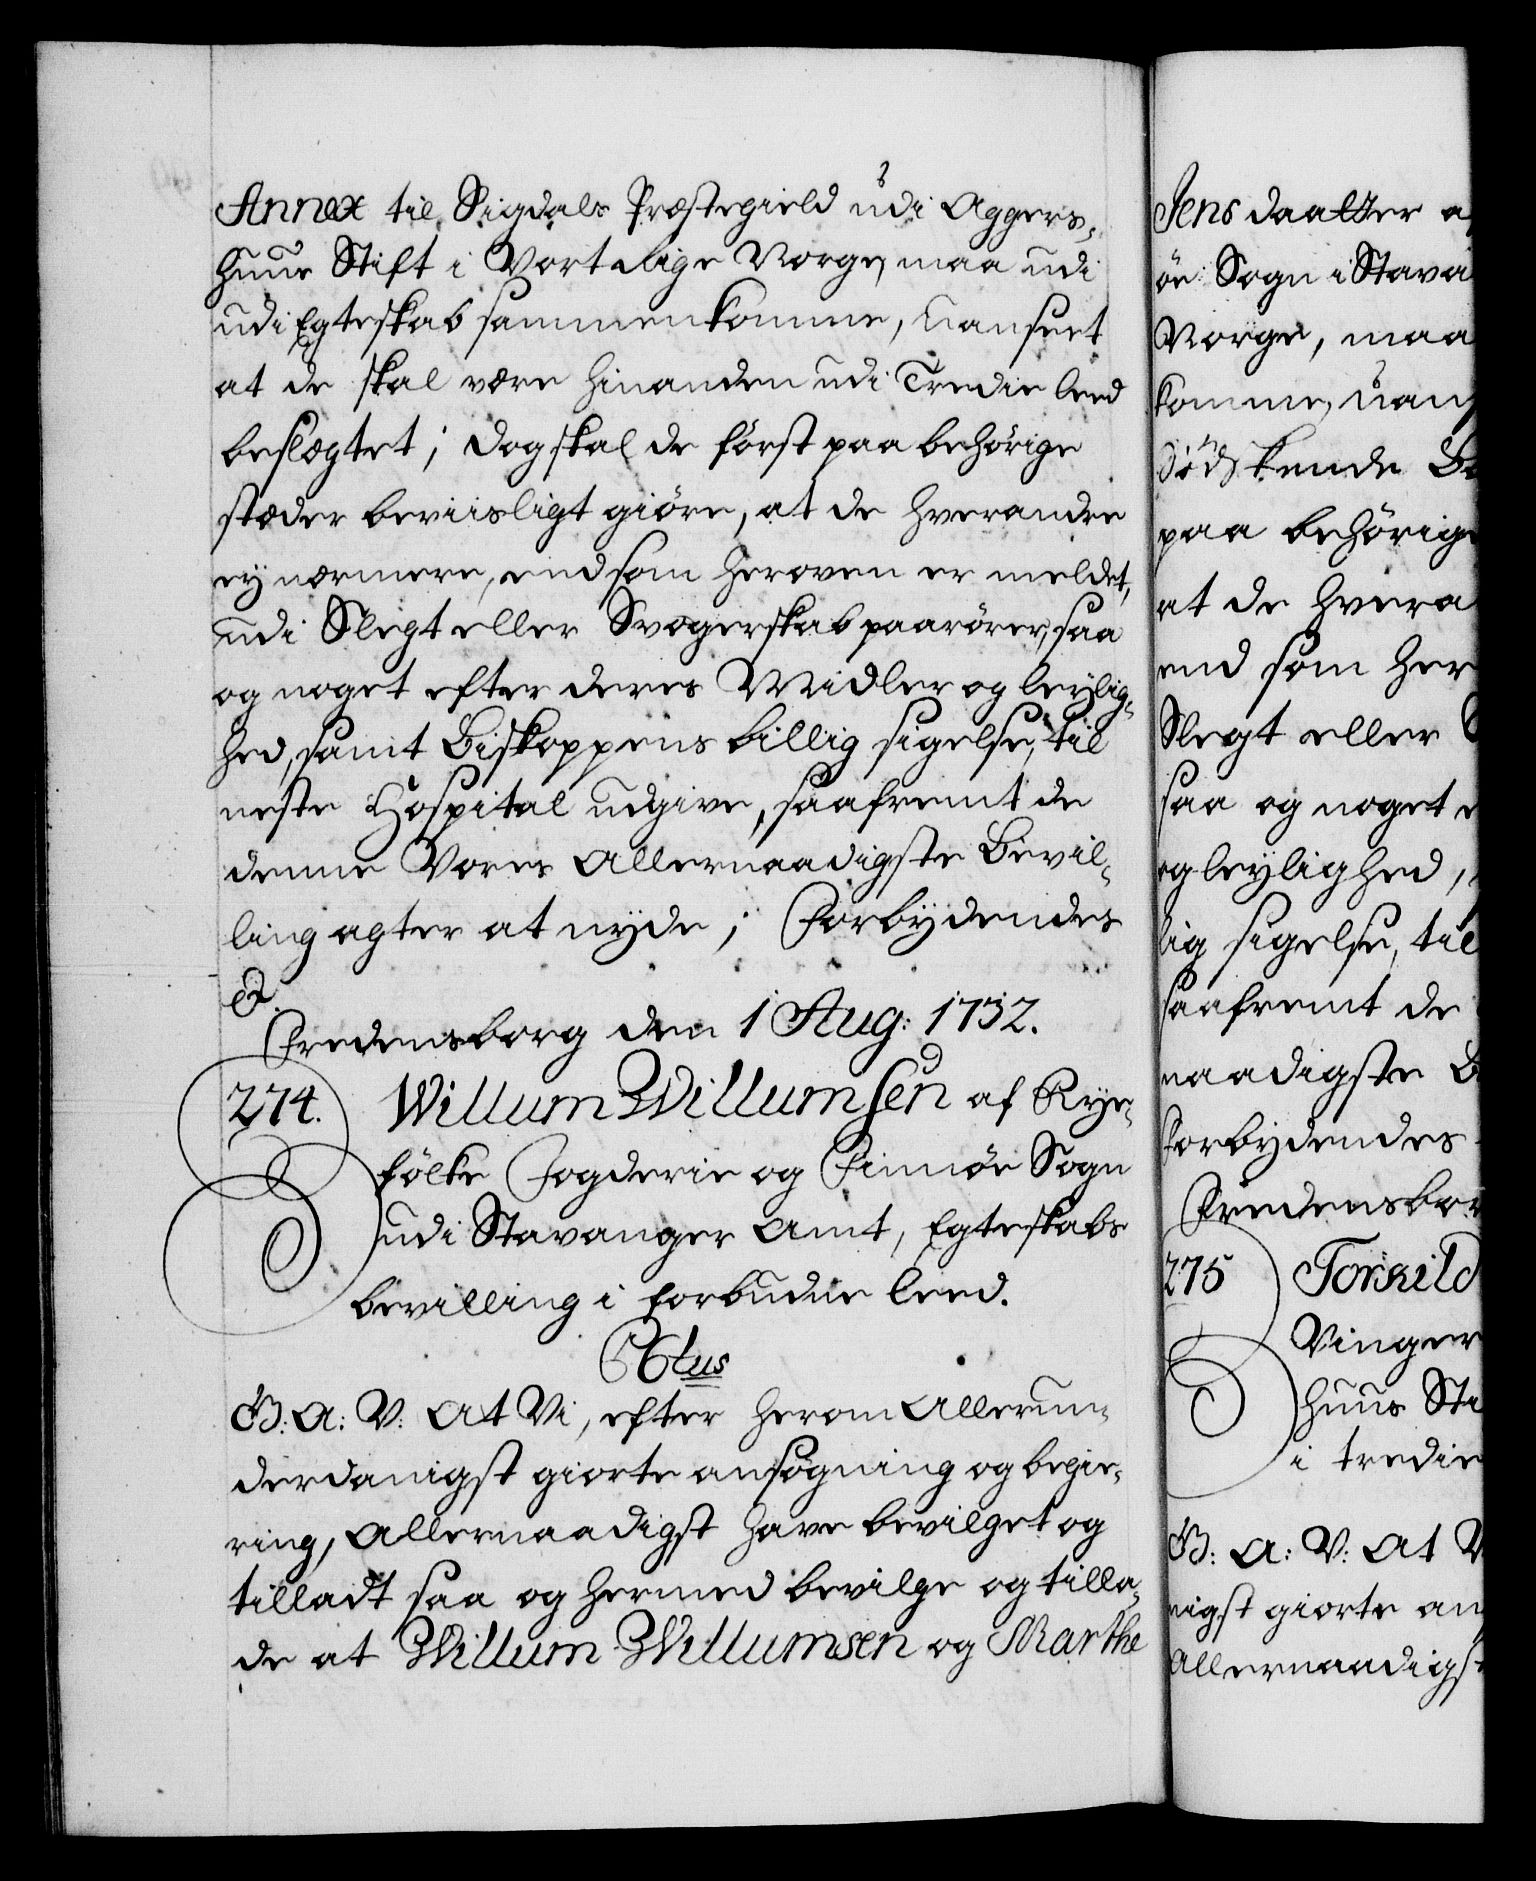 Annex til Sigdals Præstegield udi Aggers-
huus Stift i Vort Rige Norge, maa udi
udi Egteskab sammenkomme, uanseet
at de skal være hinanden udi Tredie leed
beslegtet; dog skal de først paa behörige
stæder beviisligt giöre, at de hverandre
ey nærmere, end som heroven er meldet,
udi Slegt eller Svogerskab paarörer, saa
og noget efter deres Midler og leylig-
hed, samt Biskoppens billig sigelse, til
neste Hospital udgive, saafremt de
denne Vores Allernaadigste Bevil-
ling agter at nyde; Forbydendes
&.
Fredensborg den 1 Aug: 1732.
274. Willum Willumsen af Rye-
fölke Fogderie og Finnöe Sogn
udi Stavanger Amt, Egteskabs
bevilling i forbudne leed.
C6tus
G: A: V: At Vi, efter herom Allerun-
derdanigst giorte ansögning og begie-
ring, Allernaadigst have bevilget og
tilladt saa og hermed bevilge og tilla-
de at Willum Willumsen og Marthe
Jens daatter a
öe Sogn i Stava
Norge, maa
komme, uans
Södskende B
paa behörige
at de hvera
end som her
Slegt eller S
saa og noget e
og leylighed,
lig sigelse, til
saafremt de
naadigste B
Forbydendes
Fredensbor
275 Torkild
Vinger
huus Sti
i tredie
G: A: V: At V
nigst giorte an
Allernaadigst